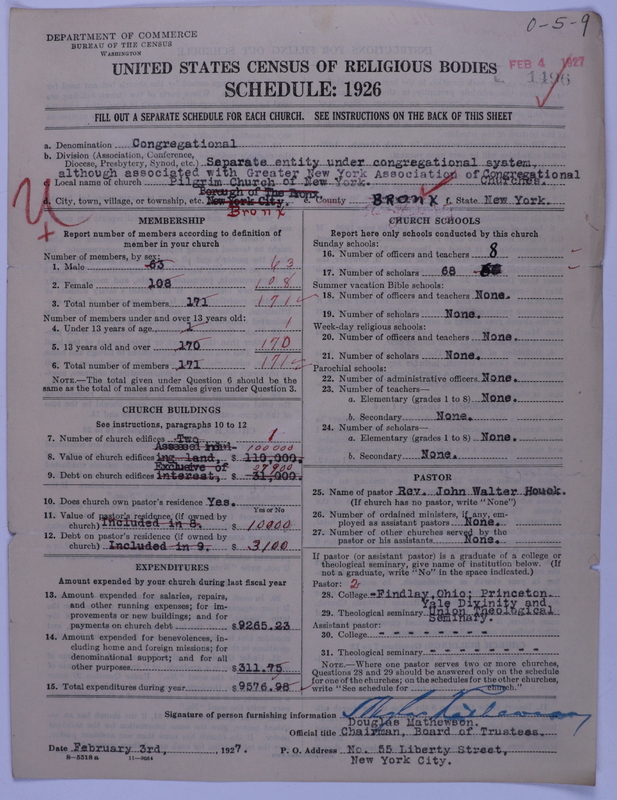 0-5-9
DEPARTMENT OF COMMERCE
BUREAU OF THE CENSUS
WASHINGTON
FEB 4 1927
1196
UNITED STATES CENSUS OF RELIGIOUS BODIES
SCHEDULE: 1926
FILL OUT A SEPARATE SCHEDULE FOR EACH CHURCH. SEE INSTRUCTIONS ON THE BACK OF THIS SHEET
a. Denomination Congregational
b. Division (Association, Conference,
Diocese, Presbytery, Synod, etc.) Separate entity under congregational system,
although associated with Greater New York Association of Congregational
Local name of church Pilgrim Church of New York. Churches.
Borough of The Bronx
d. City, town, village, or township, etc. New York City. County BRONX f. State New York.
Bronx
MEMBERSHIP
Report number of members according to definition of
member in your church
Number of members, by sex:
1. Male 63 63
2. Female 108 108
3. Total number of members 171 171
Number of members under and over 13 years old:
4. Under 13 years of age 1 1
5. 13 years old and over 170 170
6. Total number of members 171 171
NOTE.—The total given under Question 6 should be
same as the total of males and females given under Question 3.
CHURCH BUILDINGS
See instructions, paragraphs 10 to 12
7. Number of church edifices Two 1
100000
8. Value of church edifices ing land, $ 110,000.
Exclusive of 27900
9. Debt on church edifices interest, $ 31,000.
10. Does church own pastor's residence Yes.
Yes or No
11. Value of pastor's residence (if owned by
church) Included in 8. $ 10000
12. Debt on pastor's residence (if owned by
church) Included in 9. $ 3100
EXPENDITURES
Amount expended by your church during last fiscal year
13. Amount expended for salaries, repairs,
and other running expenses; for im-
provements or new buildings; and for
payments on church debt $9265.23
14. Amount expended for benevolences, in-
cluding home and foreign missions; for
denominational support; and for all
other purposes $311.75
15. Total expenditures during year $9576.98
CHURCH SCHOOLS
Report here only schools conducted by this church
Sunday schools:
16. Number of officers and teachers 8
17. Number of scholars 68
Summer vacation Bible schools:
18. Number of officers and teachers None.
19. Number of scholars None.
Week-day religious schools:
20. Number of officers and teachers None.
21. Number of scholars None.
Parochial schools:
22. Number of administrative officers None.
23. Number of teachers—
a. Elementary (grades 1 to 8) None.
b. Secondary None.
24. Number of scholars—
a. Elementary (grades 1 to 8) None.
b. Secondary None.
PASTOR
25. Name of pastor Rev. John Walter Houck.
(If church has no pastor, write "None")
26. Number of ordained ministers, if any, em-
ployed as assistant pastors None.
27. Number of other churches served by the
pastor or his assistants None.
If pastor (or assistant pastor) is a graduate of a college or
theological seminary, give name of institution below. (If
not a graduate, write "No" in the space indicated.)
Pastor: 2
28. College Findlay, Ohio; Princeton.
Yale Divinity and
29. Theological seminary Union Theological
Seminary.
Assistant pastor:
30. College - - - - - - - -
31. Theological seminary - - - - - - - -
NOTE.—Where one pastor serves two or more churches,
Questions 28 and 29 should be answered only on the schedule
for one of the churches; on the schedules for the other churches,
write "See schedule for church."
Signature of person furnishing information
Douglas Mathewson.
Official title Chairman, Board of Trustees.
Date February 3rd, 1927. P. O. Address No. 55 Liberty Street,
8-5318a 11-9964 New York City.